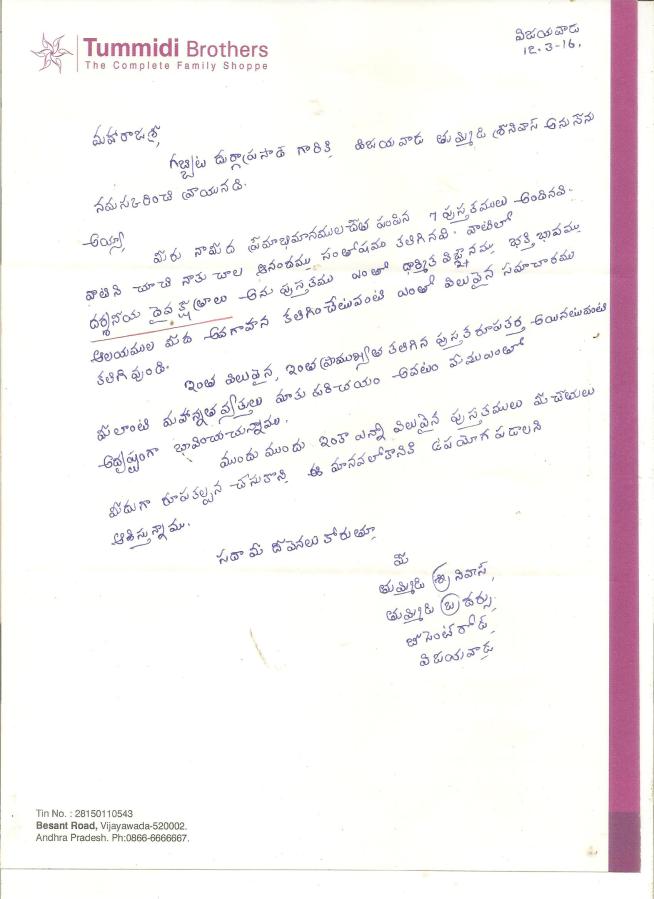 Tummidi Brothers
The Complete Family Shoppe
విజయవాడ
12-3-16.
మహారాజశ్రీ,
గబ్బిట దుర్గాప్రసాద్ గారికి విజయవాడ తుమ్మిడి శ్రీనివాస్ అను నేను
నమస్కరించి వ్రాయునది.
అయ్యా, మీరు నామీద ప్రేమాభిమానములచేత పంపిన 7 పుస్తకములు అందినవి.
వాటిని చూచి నాకు చాల ఆనందము సంతోషము కలిగినవి. వాటిలో
దర్శనీయ దైవ క్షేత్రాలు అను పుస్తకము ఎంతో ధార్మిక విజ్ఞానము, భక్తిభావము
ఆలయముల మీద అవగాహన కలిగించేటువంటి ఎంతో విలువైన సమాచారము
కలిగి వుంది.
ఇంత విలువైన, ఇంత ప్రాముఖ్యత కలిగిన పుస్తక రూపకర్త అయినటువంటి
మీలాంటి మహోన్నత వ్యక్తులు మాకు పరిచయం అవటం మేము ఎంతో
అదృష్టంగా భావించుచున్నాము.
ముందు ముందు ఇంకా ఎన్నో విలువైన పుస్తకములు మీ చేతులు
మీదుగా రూపకల్పన చేసుకొని ఈ మానవలోకానికి ఉపయోగ పడాలని
ఆశిస్తున్నాము.
సదా మీ దీవెనలు కోరుతూ
మీ
తుమ్మిడి శ్రీనివాస్,
తుమ్మిడి బ్రదర్సు,
బీసెంట్ రోడ్,
విజయవాడ
Tin No. : 28150110543
Besant Road, Vijayawada-520002.
Andhra Pradesh. Ph:0866-6666667.